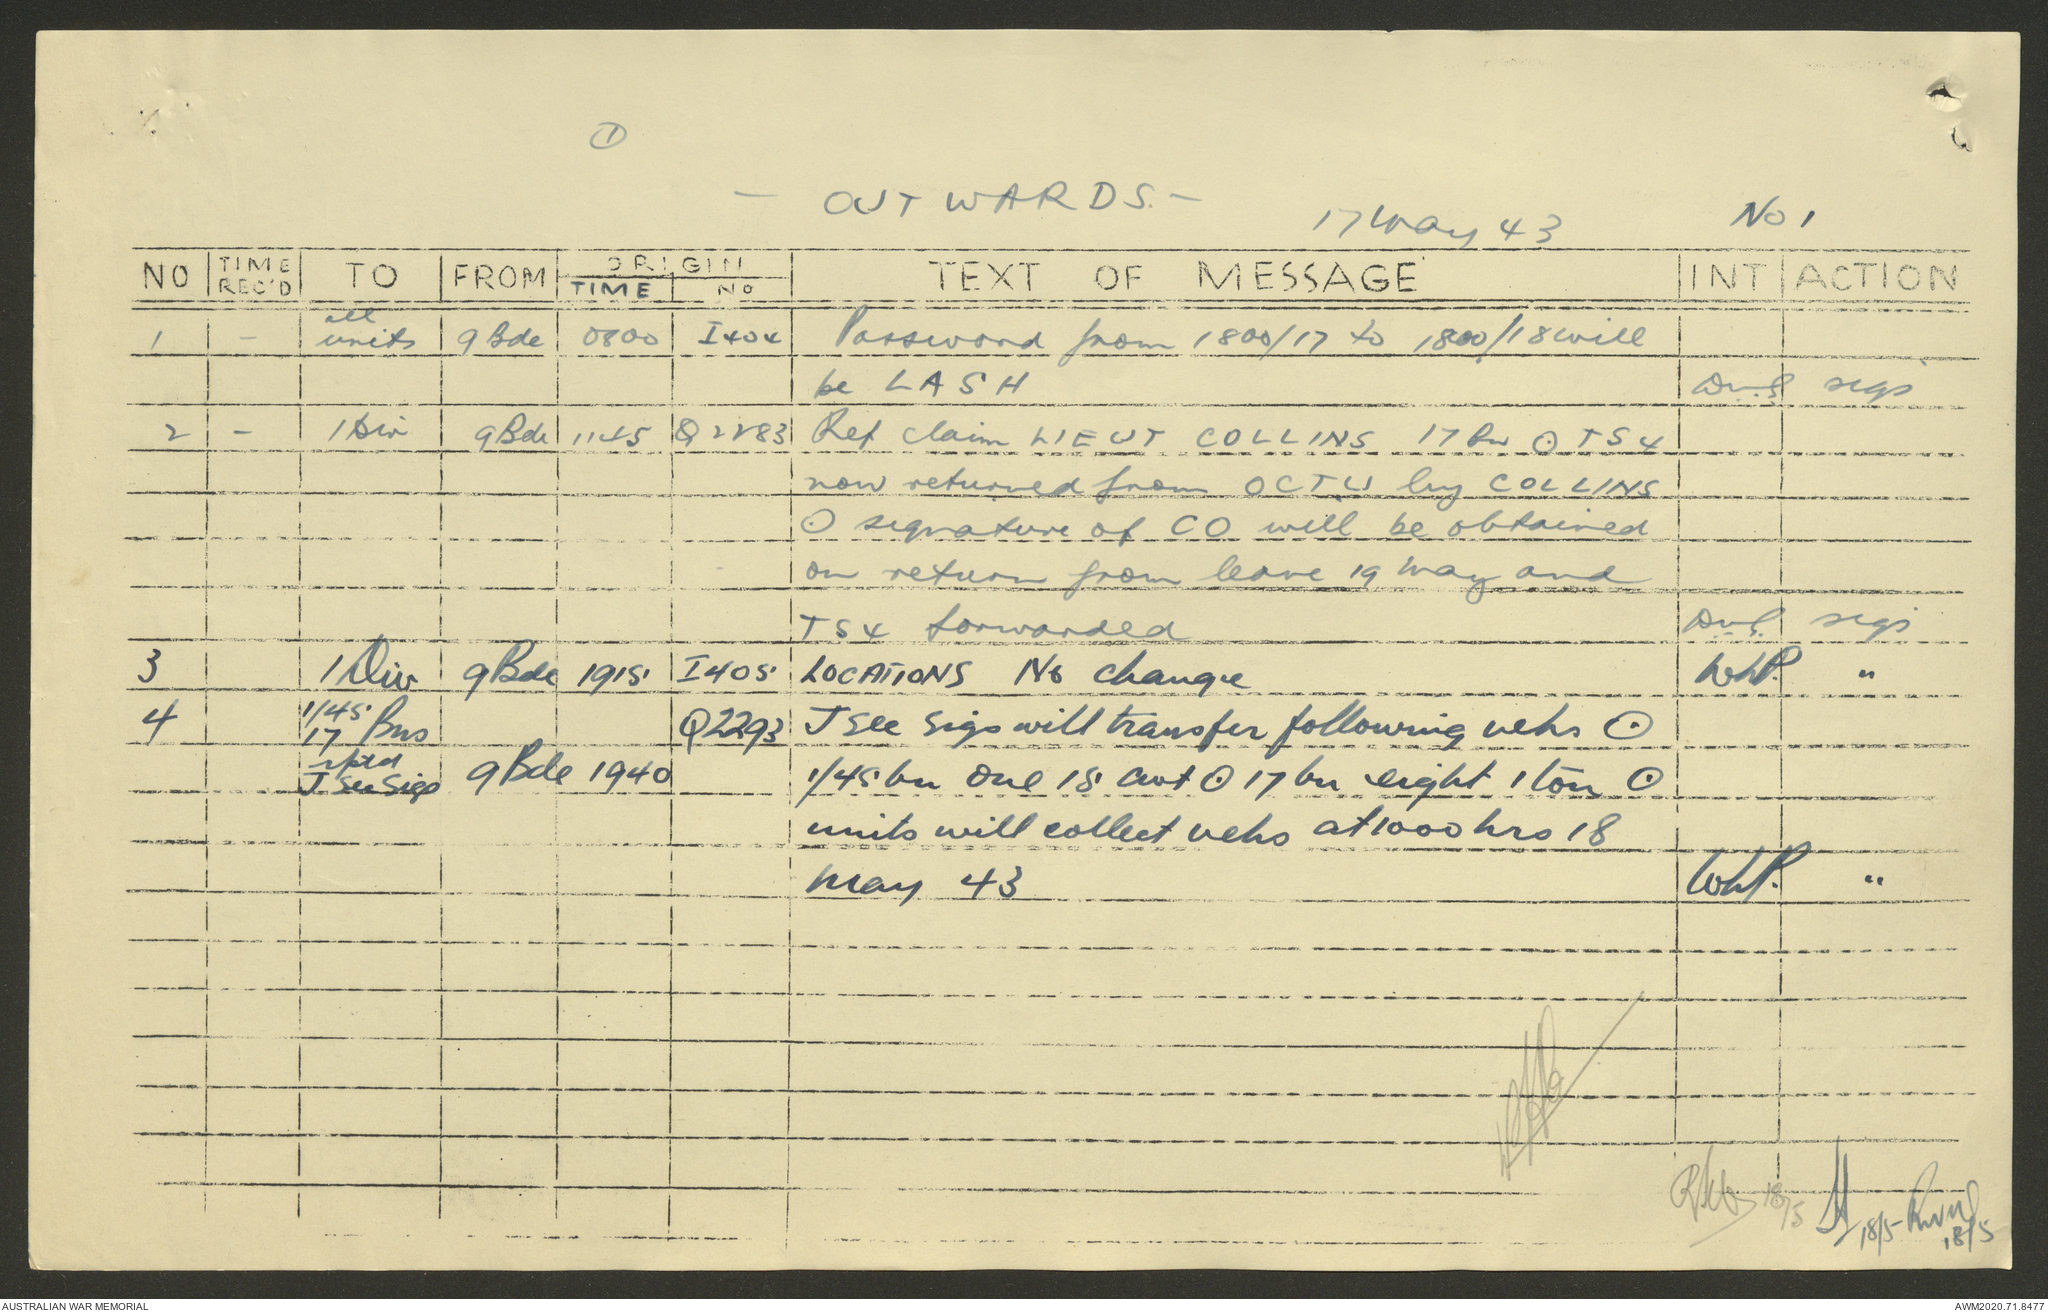 ①
- OUTWARDS. -
17 May 43 No 1
NO TIME REC'D TO FROM ORIGIN TIME No TEXT OF MESSAGE INT ACTION
1 - all units 9 Bde 0800 I404 Password from 1800/17 to 1800/18 will
be LASH sigs
2 - 1 Div 9 Bde 1145 Q2283 Ref claim LIEUT COLLINS 17 Bn ⊙ TS4
now returned from OCTU by COLLINS
⊙ signature of CO will be obtained
on return from leave 19 May and
TS4 forwarded sigs
3 1 Div 9 Bde 1915 I405 LOCATIONS No change WhP. "
4 1/45 17 Bns Q2293 J Sec Sigs will transfer following vehs ⊙
rptd J Sec Sigs 9 Bde 1940 1/45 bn one 15 cwt ⊙ 17 bn eight 1 ton ⊙
units will collect vehs at 1000 hrs 18
May 43 WhP. "
18/5 18/5 18/5
AUSTRALIAN WAR MEMORIAL AWM2020.71.8477